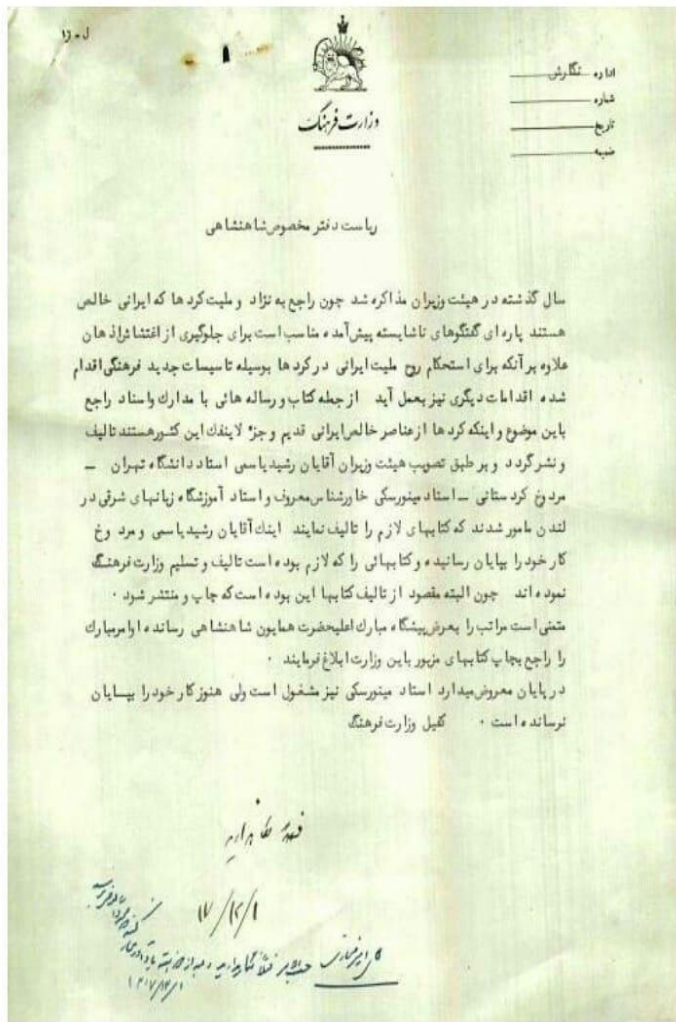 وزارت فرهنگ
اداره نگارش
شماره
تاریخ
ضمیمه
ریاست دفتر مخصوص شاهنشاهی
سال گذشته در هیئت وزیران مذاکره شد چون راجع به نژاد و ملیت کرد ها که ایرانی خالص
هستند پاره ای گفتگوهای ناشایسته پیش آمده مناسب است برای جلوگیری از اغتشاش اذهان
علاوه بر آنکه برای استحکام روح ملیت ایرانی در کرد ها بوسیله تاسیسات جدید فرهنگی اقدام
شده اقدامات دیگری نیز بعمل آید از جمله کتاب و رساله هائی با مدارك و اسناد راجع
باین موضوع و اینکه کرد ها از عناصر خالص ایرانی قدیم و جزء لاینفك این کشور هستند تالیف
و نشر گردد و بر طبق تصویب هیئت وزیران آقایان رشید یاسمی استاد دانشگاه تهران -
مردوخ کردستانی - استاد مینورسکی خاورشناس معروف و استاد آموزشگاه زبانهای شرقی در
لندن مامور شدند که کتابهای لازم را تالیف نمایند اینك آقایان رشید یاسمی و مرد وخ
کار خود را بپایان رسانیده و کتابهائی را که لازم بوده است تالیف و تسلیم وزارت فرهنگ
نموده اند چون البته مقصود از تالیف کتابها این بوده است که چاپ و منتشر شود ٠
متمنی است مراتب را بعرض پیشگاه مبارك اعلیحضرت همایون شاهنشاهی رسانده اوامر مبارك
را راجع بچاپ کتابهای مزبور باین وزارت ابلاغ فرمایند ٠
در پایان معروض میدارد استاد مینورسکی نیز مشغول است ولی هنوز کار خود را بپایان
نرسانده است ٠ کفیل وزارت فرهنگ
۱۷/۱۲/۱